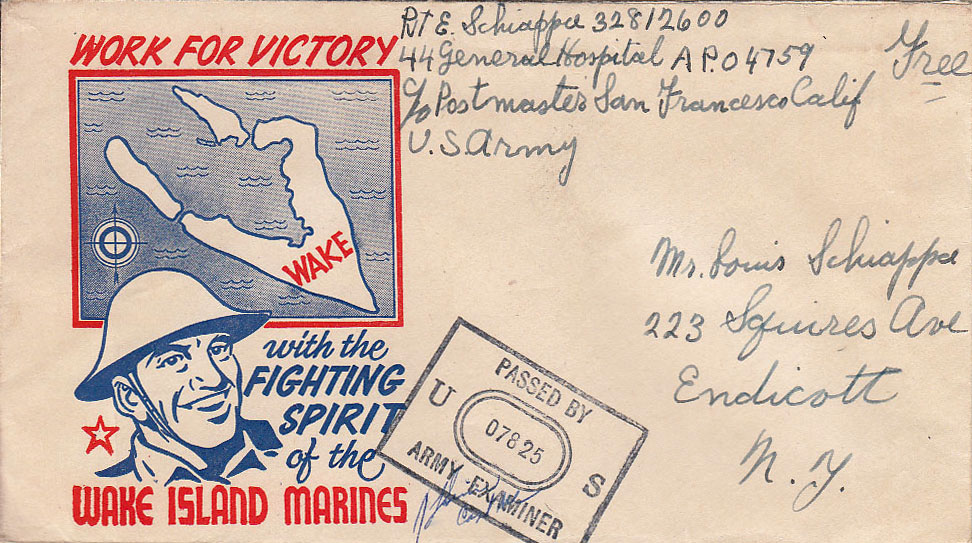 WORK FOR VICTORY
WAKE
with the
FIGHTING
SPIRIT
of the
WAKE ISLAND MARINES
Pvt E. Schiappa 32812600
44 General Hospital A.P.O 4759
c/o Postmaster San Francesco Calif
U.S. Army
Free
Mr. Louis Schiappa
223 Squires Ave
Endicott
N.Y.
PASSED BY
U 07825 S
ARMY EXAMINER